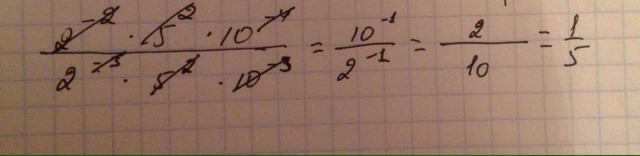 2⁻² · 5² · 10⁻⁴ / 2⁻³ · 5² · 10⁻³ = 10⁻¹ / 2⁻¹ = 2 / 10 = 1 / 5